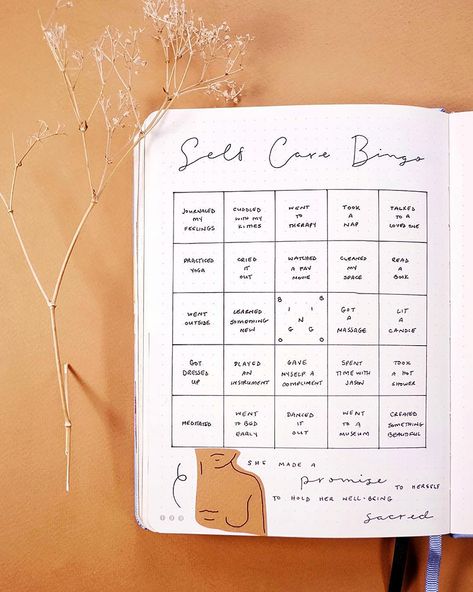 Self Care Bingo
JOURNALED
MY
FEELINGS
CUDDLED
WITH MY
KITTIES
WENT
TO
THERAPY
TOOK
A
NAP
TALKED
TO A
LOVED ONE
PRACTICED
YOGA
CRIED
IT
OUT
WATCHED
A FAV
MOVIE
CLEANED
MY
SPACE
READ
A
BOOK
WENT
OUTSIDE
LEARNED
SOMETHING
NEW
B B
I I
N
G G
O O
GOT
A
MASSAGE
LIT
A
CANDLE
GOT
DRESSED
UP
PLAYED
AN
INSTRUMENT
GAVE
MYSELF A
COMPLIMENT
SPENT
TIME WITH
JASON
TOOK
A HOT
SHOWER
MEDITATED
WENT
TO BED
EARLY
DANCED
IT
OUT
WENT
TO A
MUSEUM
CREATED
SOMETHING
BEAUTIFUL
SHE MADE A
promise TO HERSELF
TO HOLD HER WELL-BEING
sacred